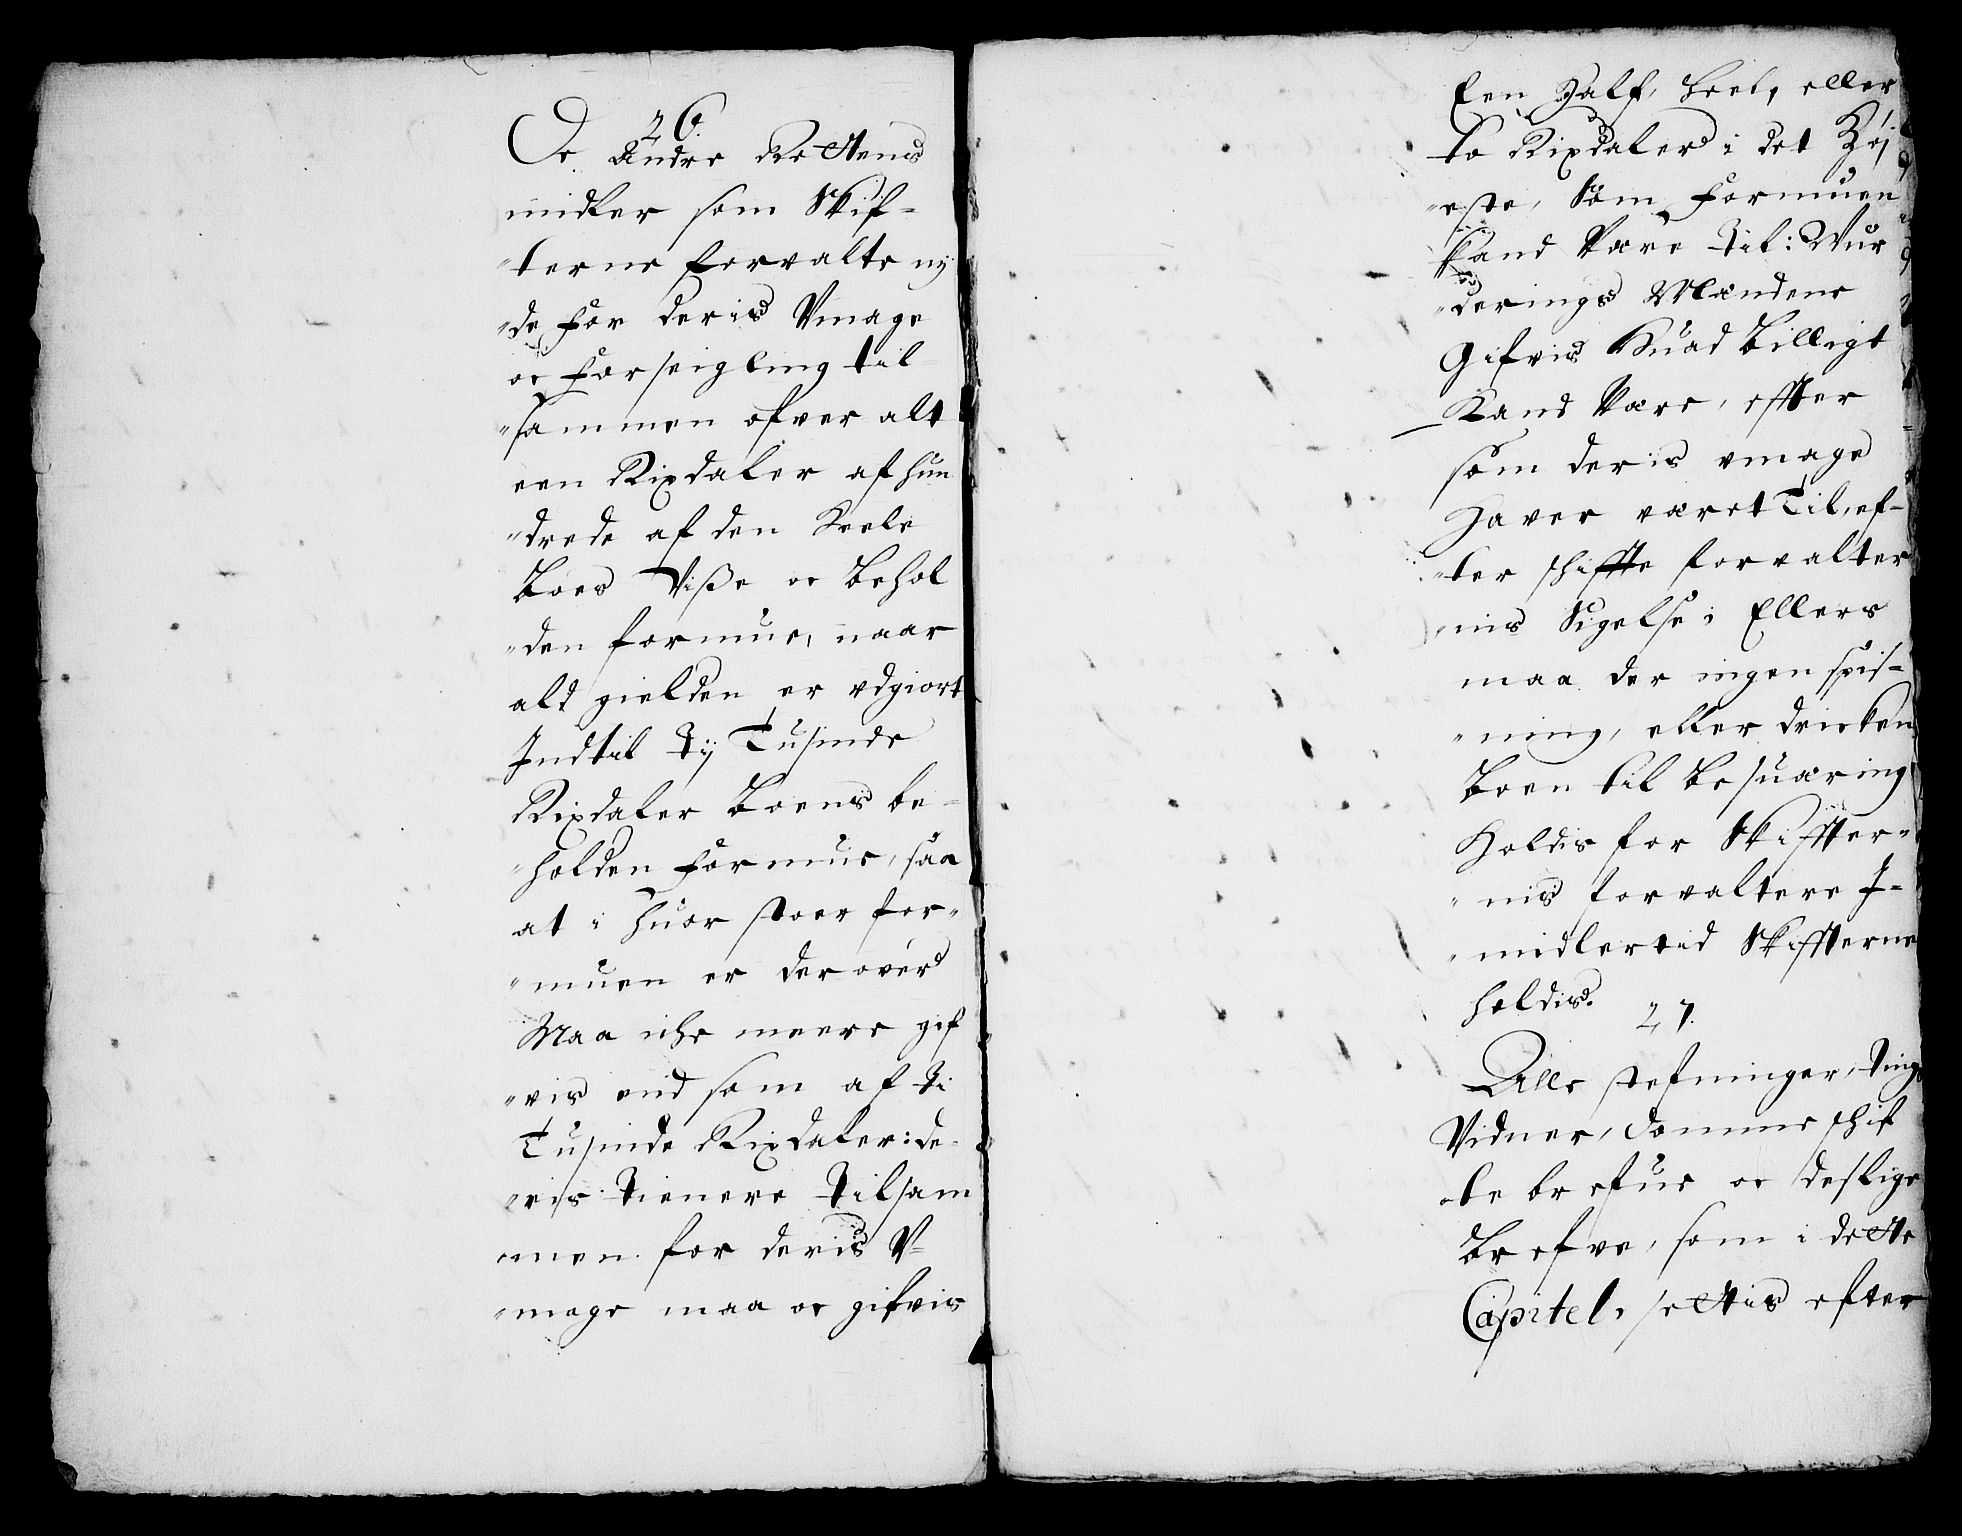 26.
De andre Rettens
midler som Skif-
"terne forvalte nÿ
"de for deris Vmage
oc forseigling til
"sammen ofver alt
een Rixdaler af hun
"drede af den heele
Boes Viße oc behol
"den formue, naar
ald gielden er vdgiort
Indtil Tij Tusinde
Rixdaler Boens be-
"holden formue, saa
at i huor stoer for-
"muen er derover
Maa iche meere gif
"vis end som af Ti
Tusinde Rixdaler: de-
"ris Tienere Tilsam
"men for deris V-
"mage maa oc gifvis
Een Half, heel, eller
to Rixdaler i det Høj
"este, som formuen
kand Være til: Vur
"derings Mændene
Gifvis huad billigt
Kand Være, effter
som deris vmage
Haver været Til, ef-
"ter schiffte forvalter
"nis Sigelse i Ellers
maa der ingen spis-
"ning, eller dricken
Boen til besuæring
Holdis for Skiffter-
"nis forvaltere I-
"midlertid Skiffterne
holdis.
27.
Alle stefninger, Tings
Vidner, Domme schif
"te brefue oc deslige
Brefve, som i dette
Capitel, settis efter